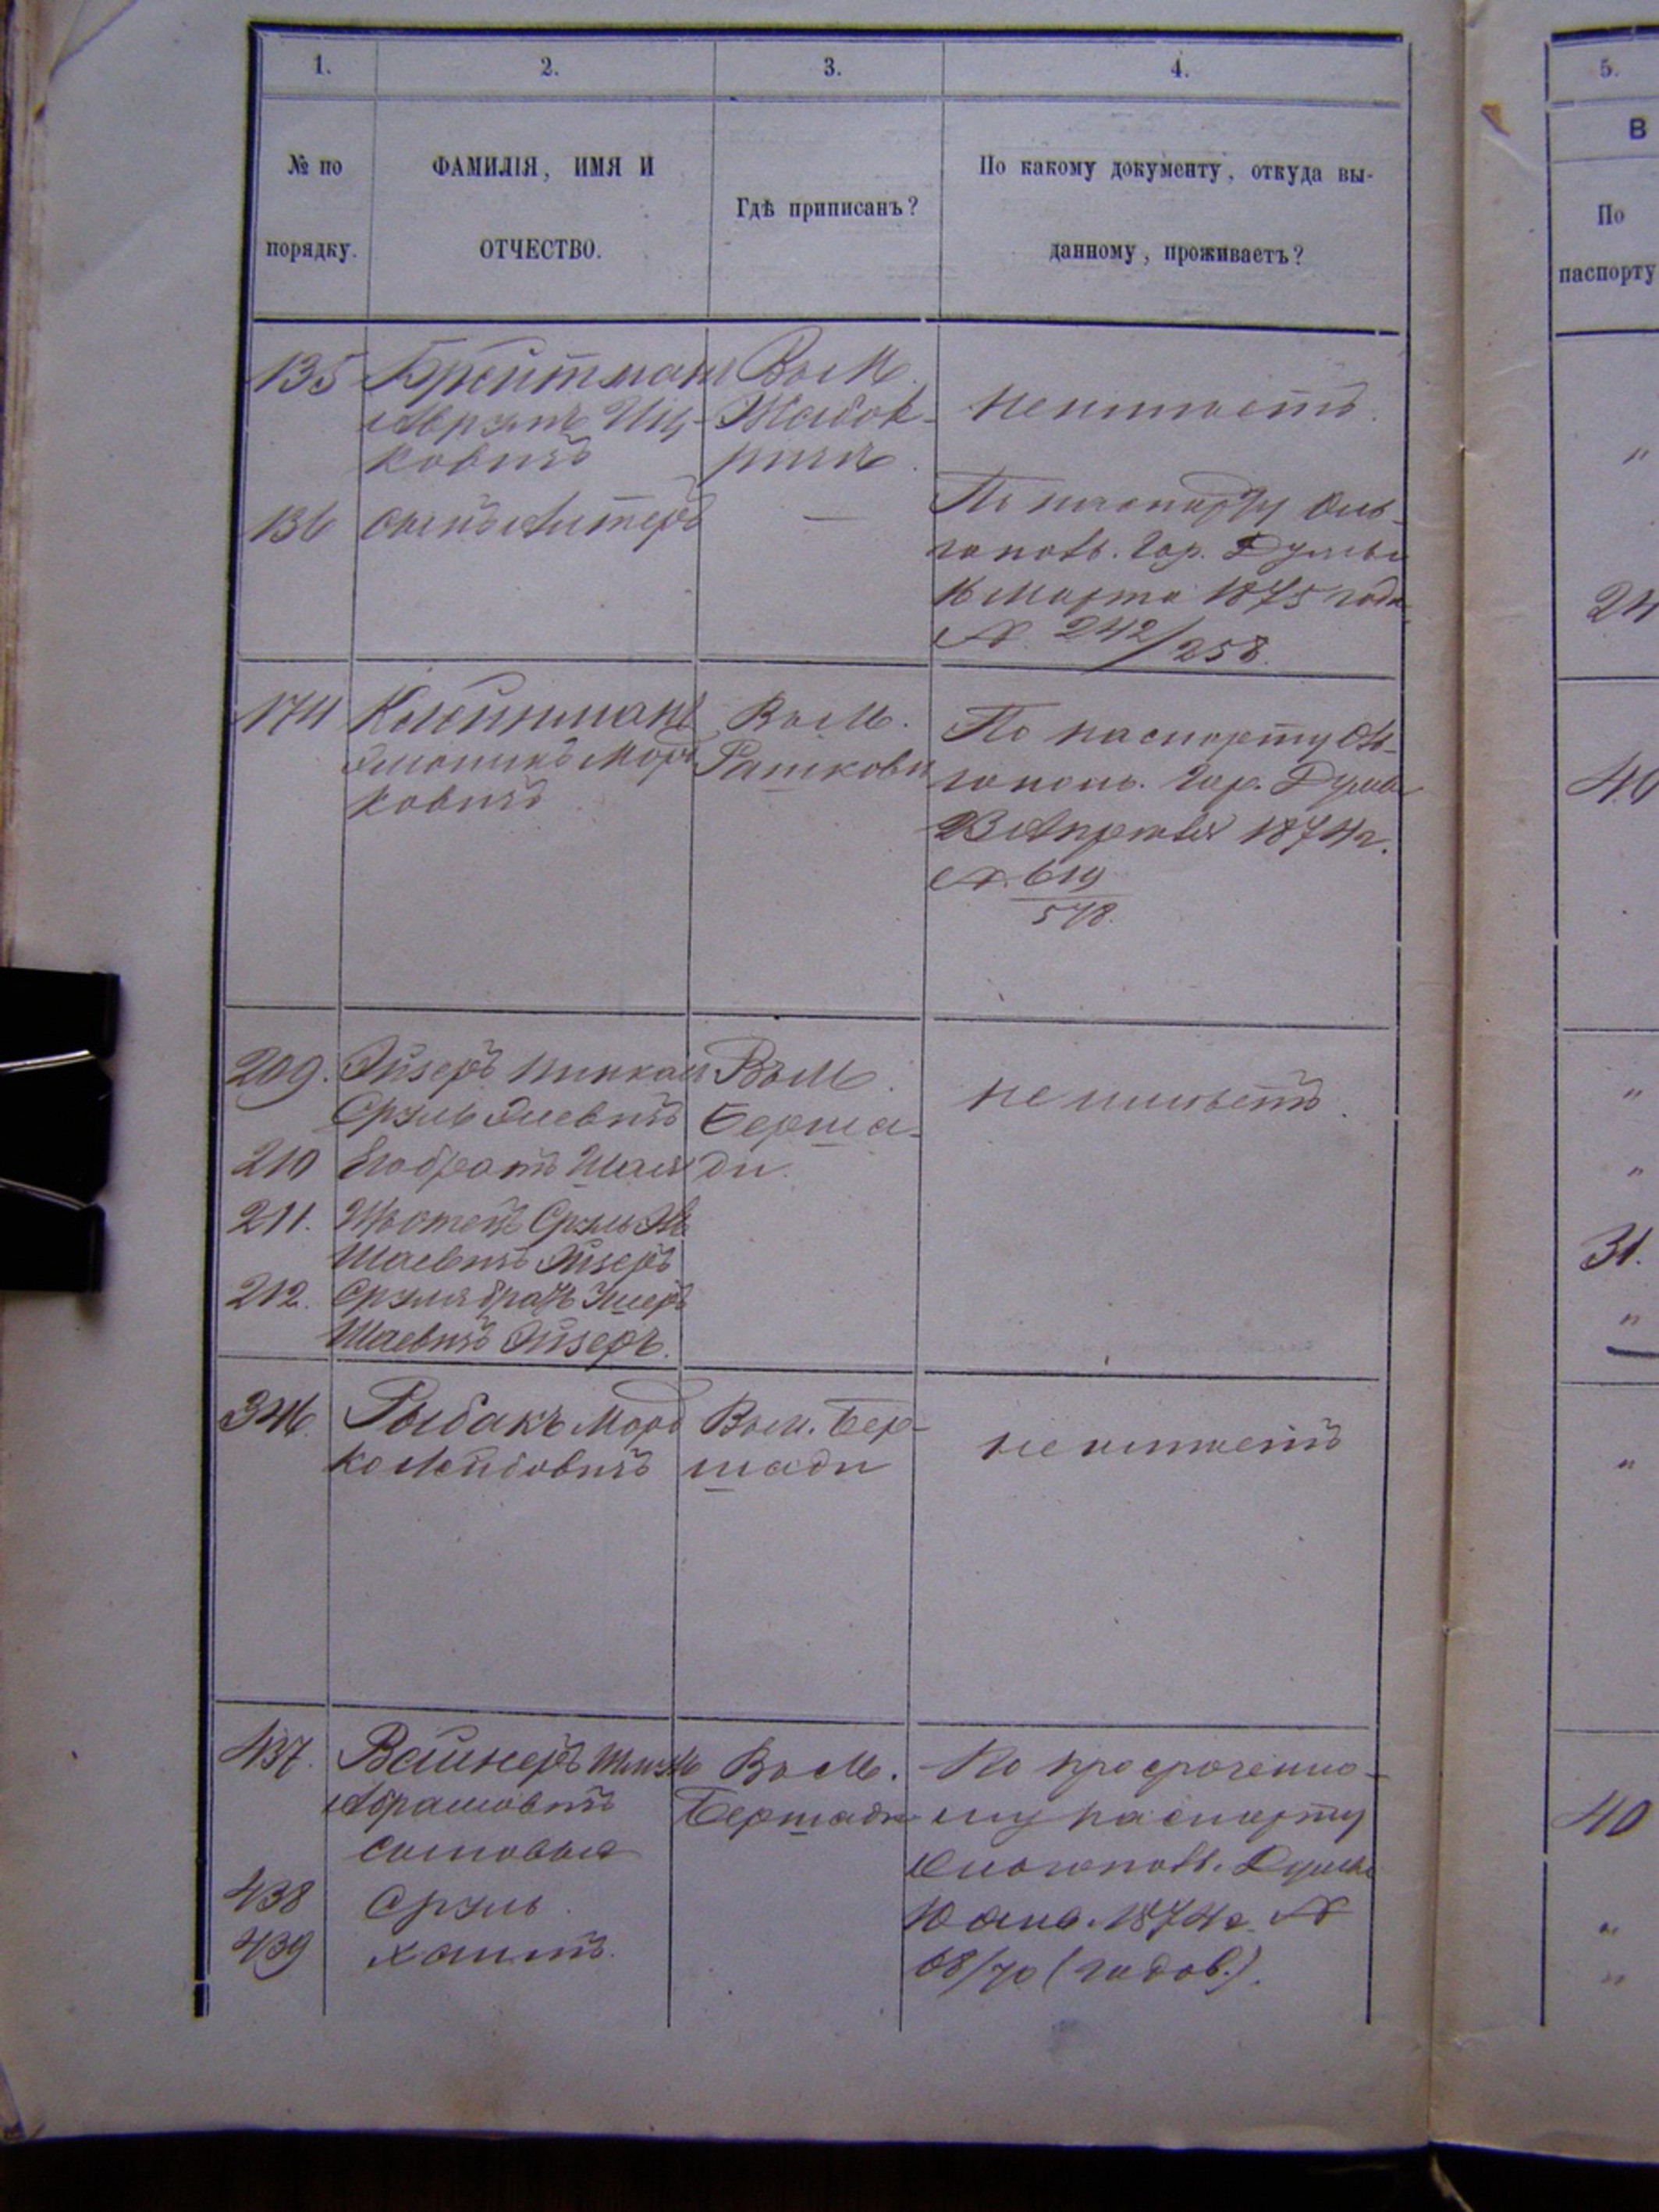 1. 2. 3. 4. 5.
№ по
порядку.
ФАМИЛІЯ, ИМЯ И
ОТЧЕСТВО.
Гдѣ приписанъ?
По какому документу, откуда вы-
данному, проживаетъ?
В
По
паспорту
135 Брейтманъ
Аврумъ Иц-
ковичъ
Въ М.
Жабок-
ричѣ
неимѣетъ.
"
136 сынъ Антеръ
—
По паспорту Оль-
гопол. Гор. Думы
16 Марта 1875 года
№ 242/258.
24
174 Клейнманъ
Мор-
ковичъ
Въ М.
Рашкови
По паспорту Оль-
гопол. Гор. Думы
23 Апрѣля 1874 г.
№ 619
578.
40
209. Эйзеръ Пинкас
Срульэлевичъ
210 Его братъ Шая
211. Сруль
Шаевичъ Эйзеръ
212. Сруля братъ
Шаевичъ Эйзеръ.
Въ М.
Берша-
ди.
неимѣетъ.
"
"
31.
"
346. Рыбакъ Морд
ко Лейбовичъ
Въ м. Бер-
шади
неимѣетъ
"
437. Вайнеръ
Абрамовичъ
сыновья
438 Сруль.
439 Хаимъ.
Въ М.
Бершади
По просроченно-
му паспорту
Ольгопол. Думы
10 1874 г. №
68/70 (годов.).
40
"
"